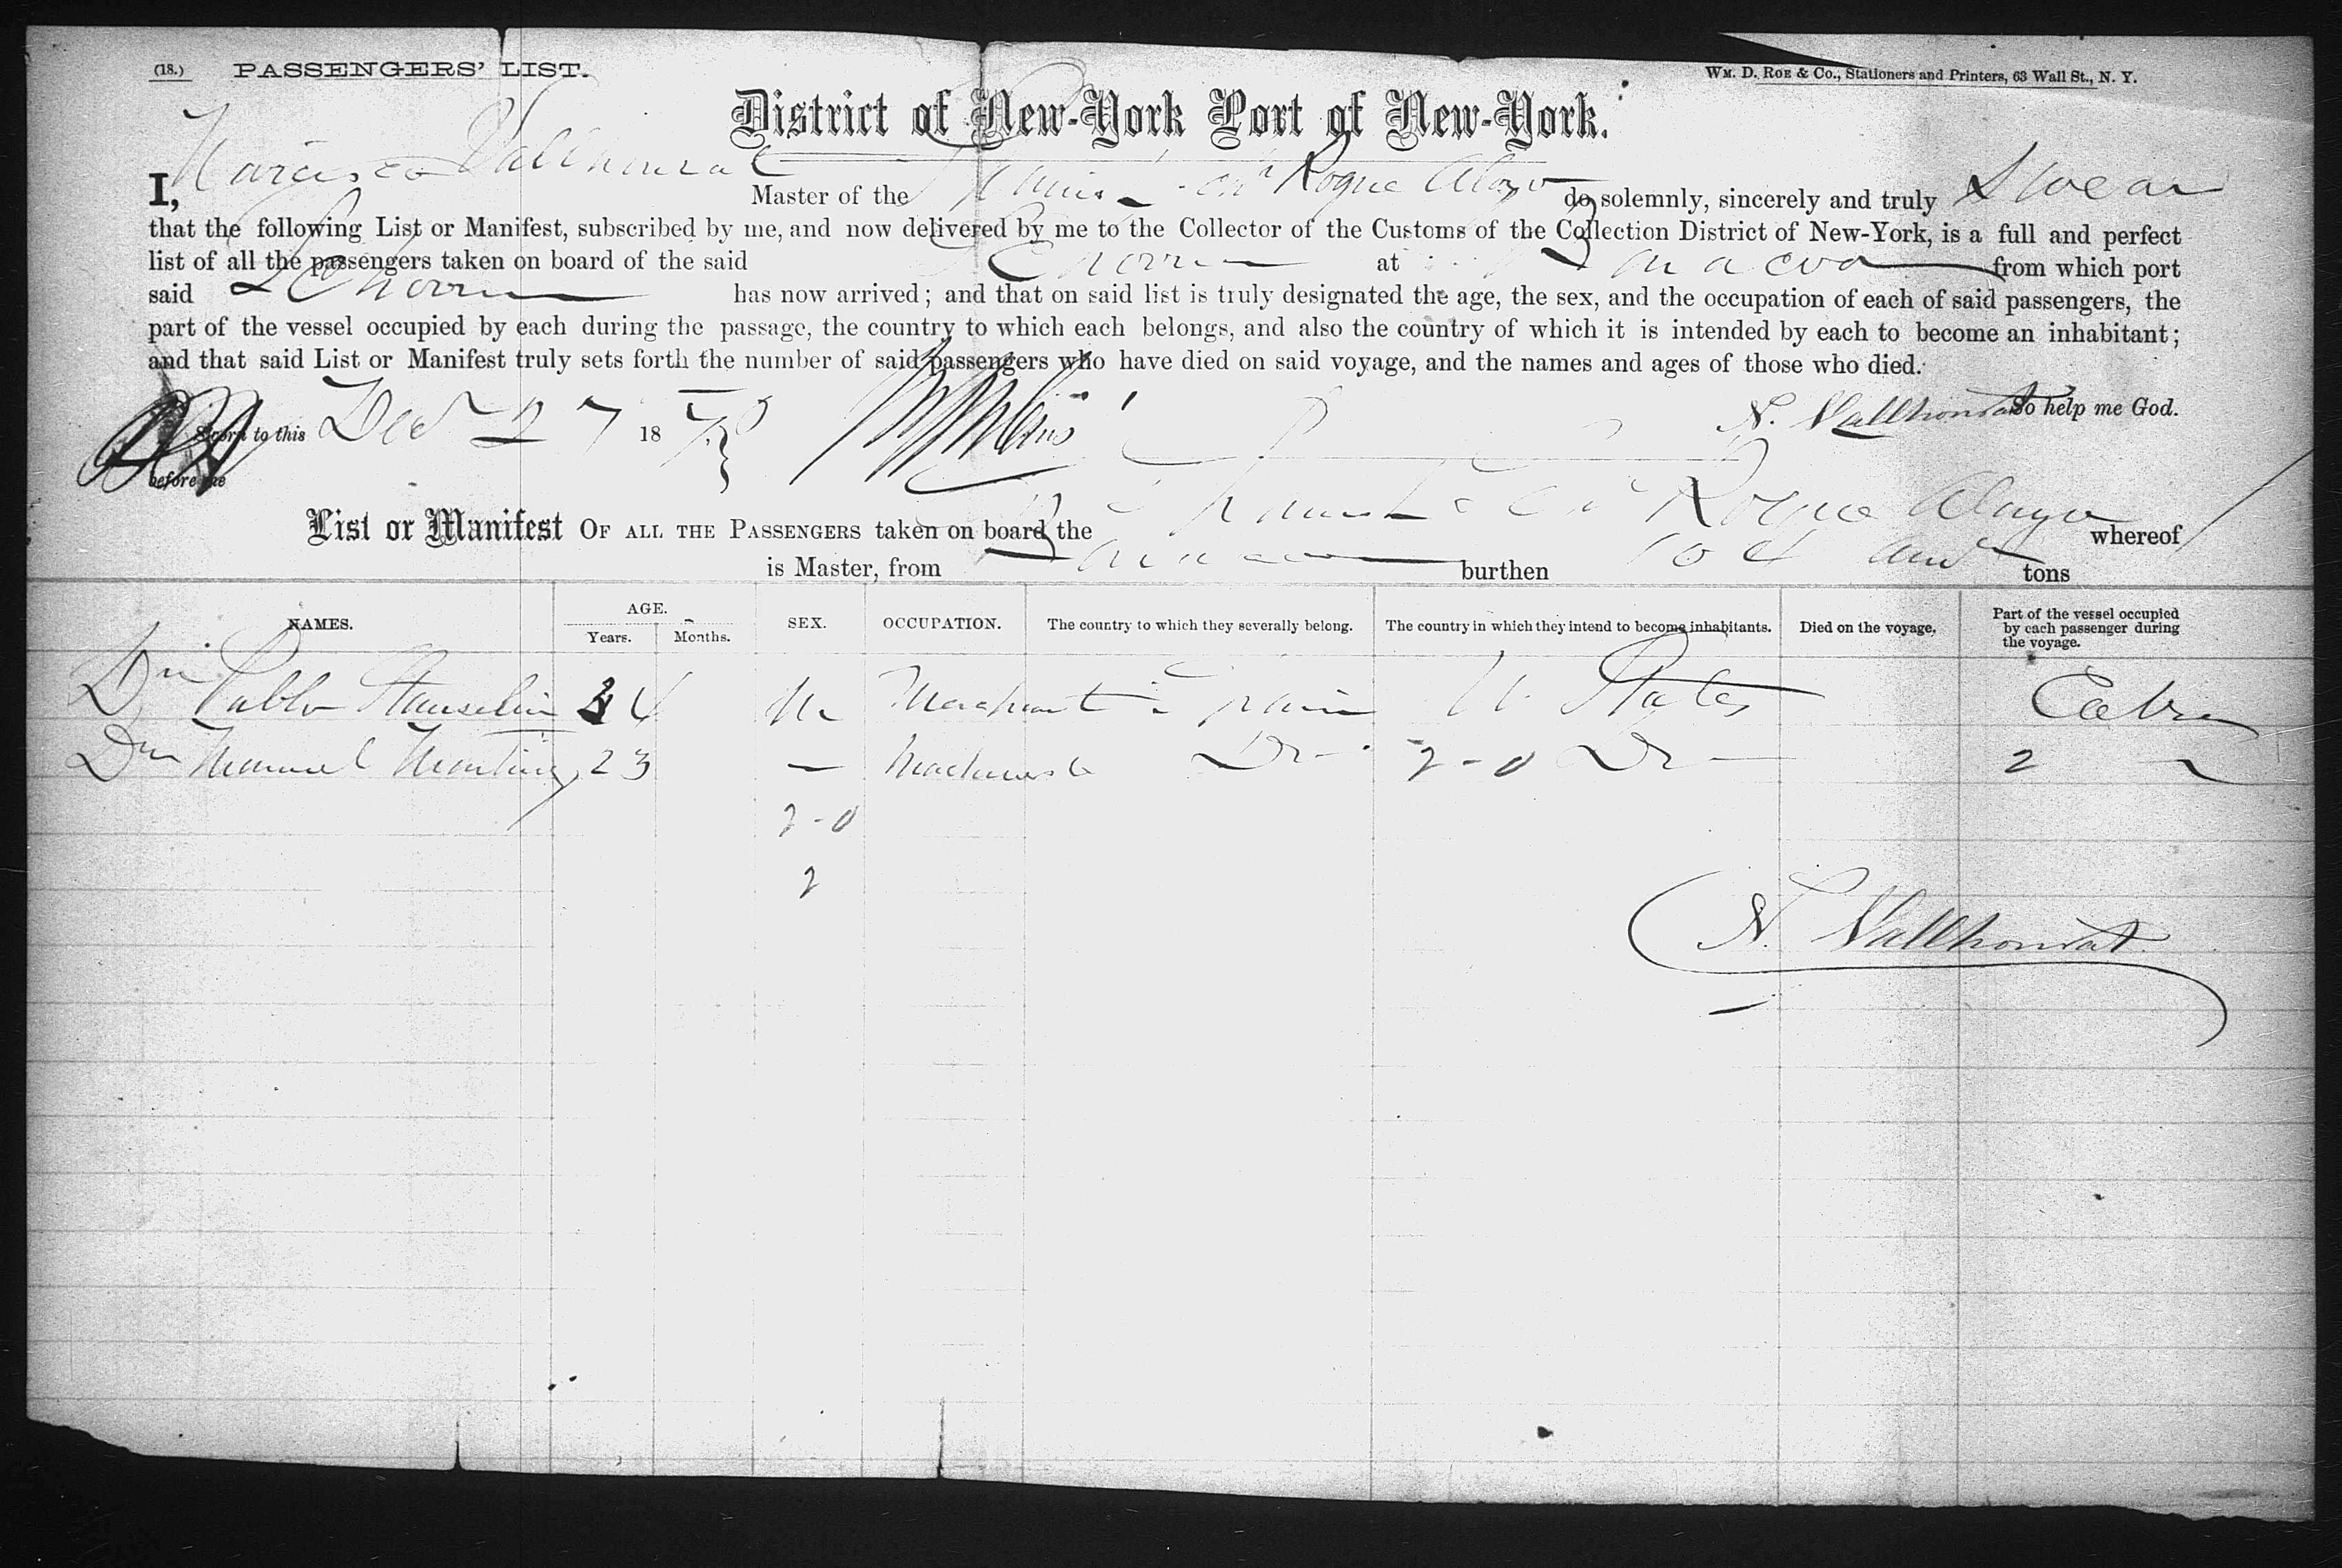 (18.) PASSENGERS' LIST. WM. D. ROE & Co., Stationers and Printers, 63 Wall St., N. Y.
District of New-York Port of New-York.
I, Narciso Vallhonrat Master of the Roque Alayo do solemnly, sincerely and truly Swear
that the following List or Manifest, subscribed by me, and now delivered by me to the Collector of the Customs of the Collection District of New-York, is a full and perfect
list of all the passengers taken on board of the said at from which port
said has now arrived; and that on said list is truly designated the age, the sex, and the occupation of each of said passengers, the
part of the vessel occupied by each during the passage, the country to which each belongs, and also the country of which it is intended by each to become an inhabitant;
and that said List or Manifest truly sets forth the number of said passengers who have died on said voyage, and the names and ages of those who died.
So help me God.
Sworn to this Dec 27 18 N. Vallhonrat
before me
List or Manifest OF ALL THE PASSENGERS taken on board the Roque Alayo whereof
is Master, from burthen tons
NAMES. AGE. Years. Months. SEX. OCCUPATION. The country to which they severally belong. The country in which they intend to become inhabitants. Died on the voyage. Part of the vessel occupied by each passenger during the voyage.
Dn Pablo 24 M Merchant Spain U States Cabin
Dn Manuel Martinez 23 — Do Do
2-0
2
N. Vallhonrat